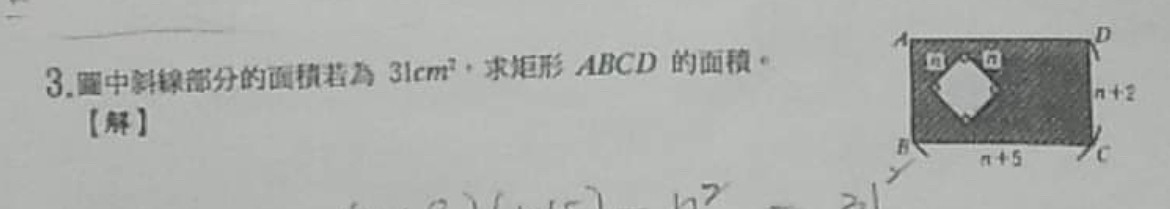 3.圖中斜線部分的面積若為 31cm²,求矩形 ABCD 的面積。
【解】
A
D
n
n
n+2
B
n+5
C
n² 31